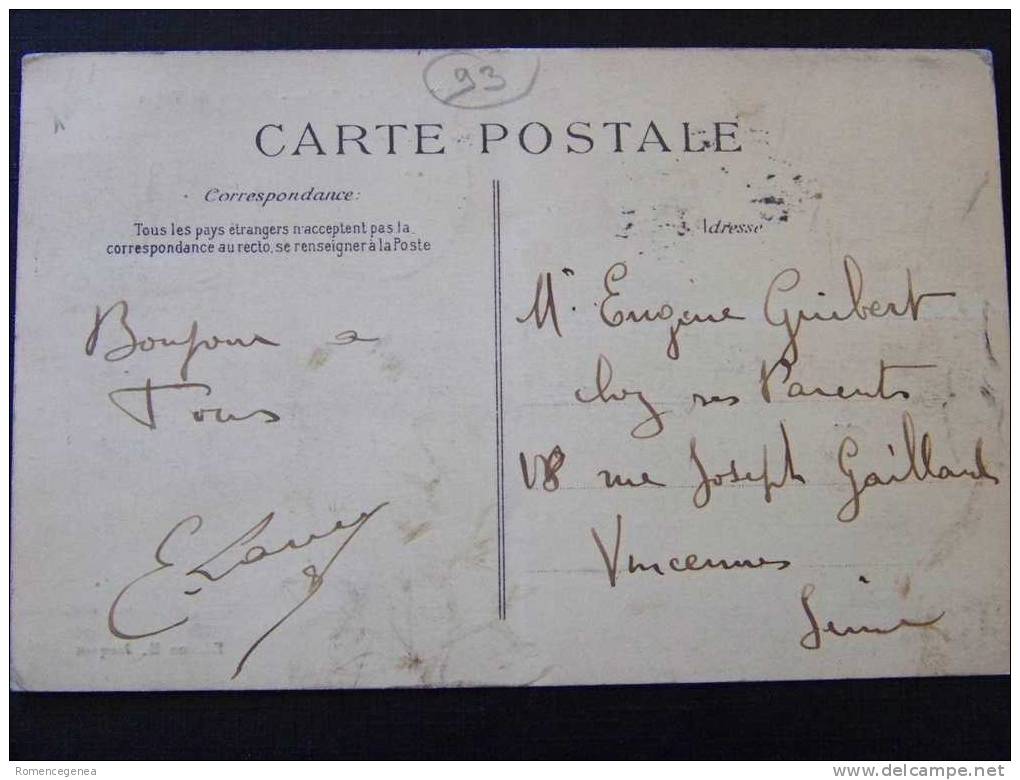 93
CARTE POSTALE
Correspondance:
Tous les pays étrangers n'acceptent pas la
correspondance au recto, se renseigner à la Poste
Bonjour a
Tous
Adresse
Mr Eugène Guibert
chez ses Parents
rue Joseph Gaillard
Vincennes
Seine
Romencegenea
www.delcampe.net